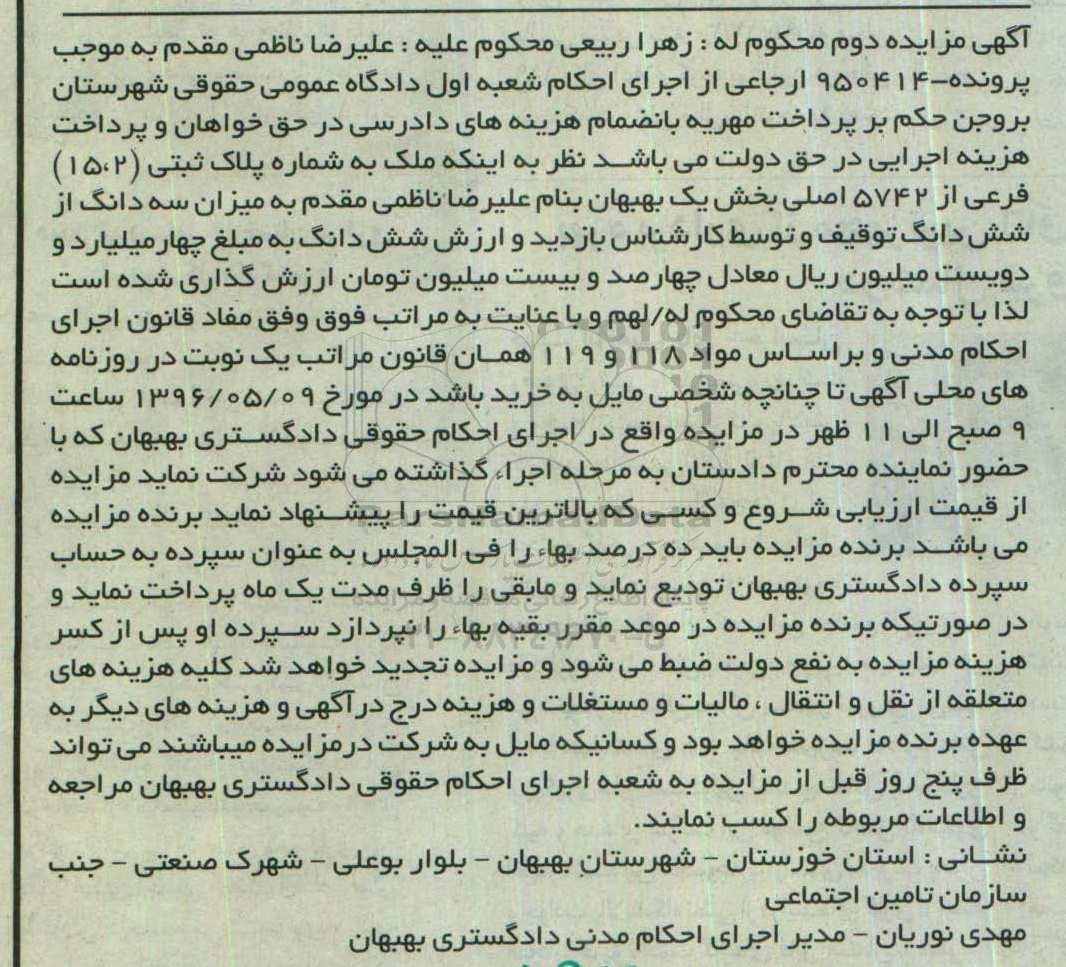 آگهی مزایده دوم محکوم له : زهرا ربیعی محکوم علیه : علیرضا ناظمی مقدم به موجب
پرونده-۹۵۰۴۱۴ ارجاعی از اجرای احکام شعبه اول دادگاه عمومی حقوقی شهرستان
بروجن حکم بر پرداخت مهریه بانضمام هزینه های دادرسی در حق خواهان و پرداخت
هزینه اجرایی در حق دولت می باشد نظر به اینکه ملک به شماره پلاک ثبتی (۱۵،۲)
فرعی از ۵۷۴۲ اصلی بخش یک بهبهان بنام علیرضا ناظمی مقدم به میزان سه دانگ از
شش دانگ توقیف و توسط کارشناس بازدید و ارزش شش دانگ به مبلغ چهارمیلیارد و
دویست میلیون ریال معادل چهارصد و بیست میلیون تومان ارزش گذاری شده است
لذا با توجه به تقاضای محکوم له/لهم و با عنایت به مراتب فوق وفق مفاد قانون اجرای
احکام مدنی و براساس مواد ۱۱۸ و ۱۱۹ همان قانون مراتب یک نوبت در روزنامه
های محلی آگهی تا چنانچه شخصی مایل به خرید باشد در مورخ ۱۳۹۶/۰۵/۰۹ ساعت
۹ صبح الی ۱۱ ظهر در مزایده واقع در اجرای احکام حقوقی دادگستری بهبهان که با
حضور نماینده محترم دادستان به مرحله اجراء گذاشته می شود شرکت نماید مزایده
از قیمت ارزیابی شروع و کسی که بالاترین قیمت را پیشنهاد نماید برنده مزایده
می باشد برنده مزایده باید ده درصد بهاء را فی المجلس به عنوان سپرده به حساب
سپرده دادگستری بهبهان تودیع نماید و مابقی را ظرف مدت یک ماه پرداخت نماید و
در صورتیکه برنده مزایده در موعد مقرر بقیه بهاء را نپردازد سپرده او پس از کسر
هزینه مزایده به نفع دولت ضبط می شود و مزایده تجدید خواهد شد کلیه هزینه های
متعلقه از نقل و انتقال ، مالیات و مستغلات و هزینه درج درآگهی و هزینه های دیگر به
عهده برنده مزایده خواهد بود و کسانیکه مایل به شرکت درمزایده میباشند می تواند
ظرف پنج روز قبل از مزایده به شعبه اجرای احکام حقوقی دادگستری بهبهان مراجعه
و اطلاعات مربوطه را کسب نمایند.
نشانی : استان خوزستان - شهرستان بهبهان - بلوار بوعلی - شهرک صنعتی - جنب
سازمان تامین اجتماعی
مهدی نوریان - مدیر اجرای احکام مدنی دادگستری بهبهان